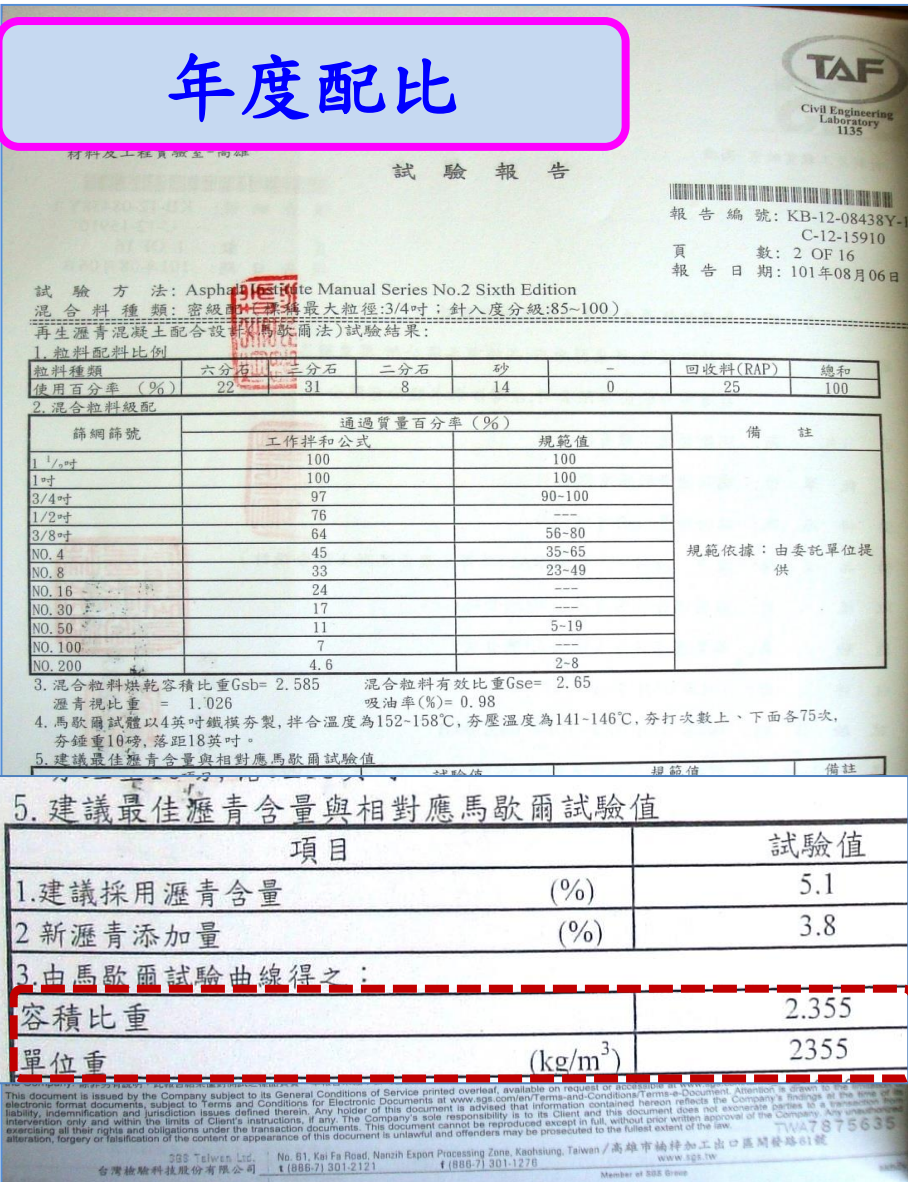 年度配比
TAF
Civil Engineering
Laboratory
1135
材料及工程實驗室-高雄
試 驗 報 告
報 告 編 號: KB-12-08438Y-1
C-12-15910
頁 數: 2 OF 16
報 告 日 期: 101年08月06日
試 驗 方 法: Asphalt Institute Manual Series No.2 Sixth Edition
混 合 料 種 類: 密級配(標稱最大粒徑:3/4吋；針入度分級:85~100)
再生瀝青混凝土配合設計(馬歇爾法)試驗結果:
1. 粒料配料比例
粒料種類 六分石 三分石 二分石 砂 - 回收料(RAP) 總和
使用百分率 (%) 22 31 8 14 0 25 100
2. 混合粒料級配
篩網篩號 通過質量百分率 (%) 備 註
工作拌和公式 規範值
1 1/2吋 100 100
1吋 100 100
3/4吋 97 90~100
1/2吋 76 ---
3/8吋 64 56~80
NO. 4 45 35~65
NO. 8 33 23~49
NO. 16 24 ---
NO. 30 17 ---
NO. 50 11 5~19
NO. 100 7 ---
NO. 200 4.6 2~8
規範依據：由委託單位提
供
3. 混合粒料烘乾容積比重Gsb= 2.585 混合粒料有效比重Gse= 2.65
瀝青視比重 = 1.026 吸油率(%)= 0.98
4. 馬歇爾試體以4英吋鐵模夯製, 拌合溫度為152~158℃, 夯壓溫度為141~146℃, 夯打次數上、下面各75次,
夯錘重10磅, 落距18英吋。
5. 建議最佳瀝青含量與相對應馬歇爾試驗值
試驗值 規範值 備註
5. 建議最佳瀝青含量與相對應馬歇爾試驗值
項目 試驗值
1.建議採用瀝青含量 (%) 5.1
2 新瀝青添加量 (%) 3.8
3.由馬歇爾試驗曲線得之：
容積比重 2.355
單位重 (kg/m³) 2355
This document is issued by the Company subject to its General Conditions of Service printed overleaf, available on request or accessible at
electronic format documents, subject to Terms and Conditions for Electronic Documents at www.sgs.com/en/Terms-and-Conditions/Terms-e-Document. Attention is drawn to the
liability, indemnification and jurisdiction issues defined therein. Any holder of this document is advised that information contained hereon reflects the Company's findings at the time of its
intervention only and within the limits of Client's instructions, if any. The Company's sole responsibility is to its Client and this document does not exonerate parties to a transaction from
exercising all their rights and obligations under the transaction documents. This document cannot be reproduced except in full, without prior written approval of the Company. Any unauthorized
alteration, forgery or falsification of the content or appearance of this document is unlawful and offenders may be prosecuted to the fullest extent of the law.
TWA7875635
SGS Taiwan Ltd. No. 61, Kai Fa Road, Nanzih Export Processing Zone, Kaohsiung, Taiwan / 高雄市楠梓加工出口區開發路61號
台灣檢驗科技股份有限公司 t (886-7) 301-2121 f (886-7) 301-1276 www.sgs.tw
Member of SGS Group